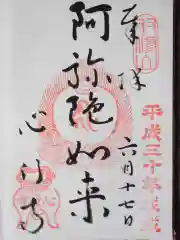 奉拝
平成三十年
六月十七日
阿弥陀如来
心行寺